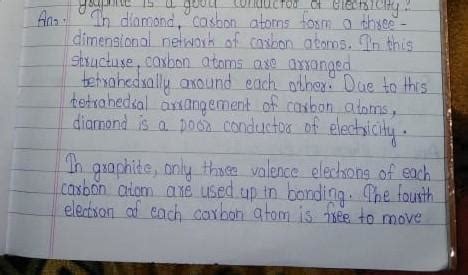 graphite is a good conductor of electricity?
Ans. In diamond, carbon atoms form a three-
dimensional network of carbon atoms. In this
structure, carbon atoms are arranged
tetrahedrally around each other. Due to this
tetrahedral arrangement of carbon atoms,
diamond is a poor conductor of electricity.
In graphite, only three valence electrons of each
carbon atom are used up in bonding. The fourth
electron of each carbon atom is free to move